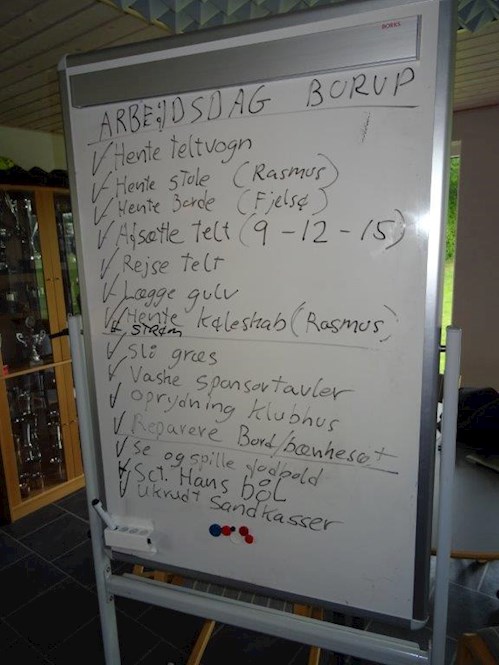 ARBEJDSDAG BORUP
✓ Hente teltvogn
✓ Hente stole (Rasmus)
✓ Hente Borde (Fjelsø)
✓ Afsætte telt (9-12-15)
✓ Rejse telt
✓ Lægge gulv
✓ Hente Køleskab (Rasmus)
+ STRØM
✓ Slå græs
✓ Vaske sponsortavler
✓ Oprydning klubhus
✓ Reparere Bord/bænkesæt
✓ Se og spille fodbold
✓ Sct. Hans bål
✓ Ukrudt Sandkasser